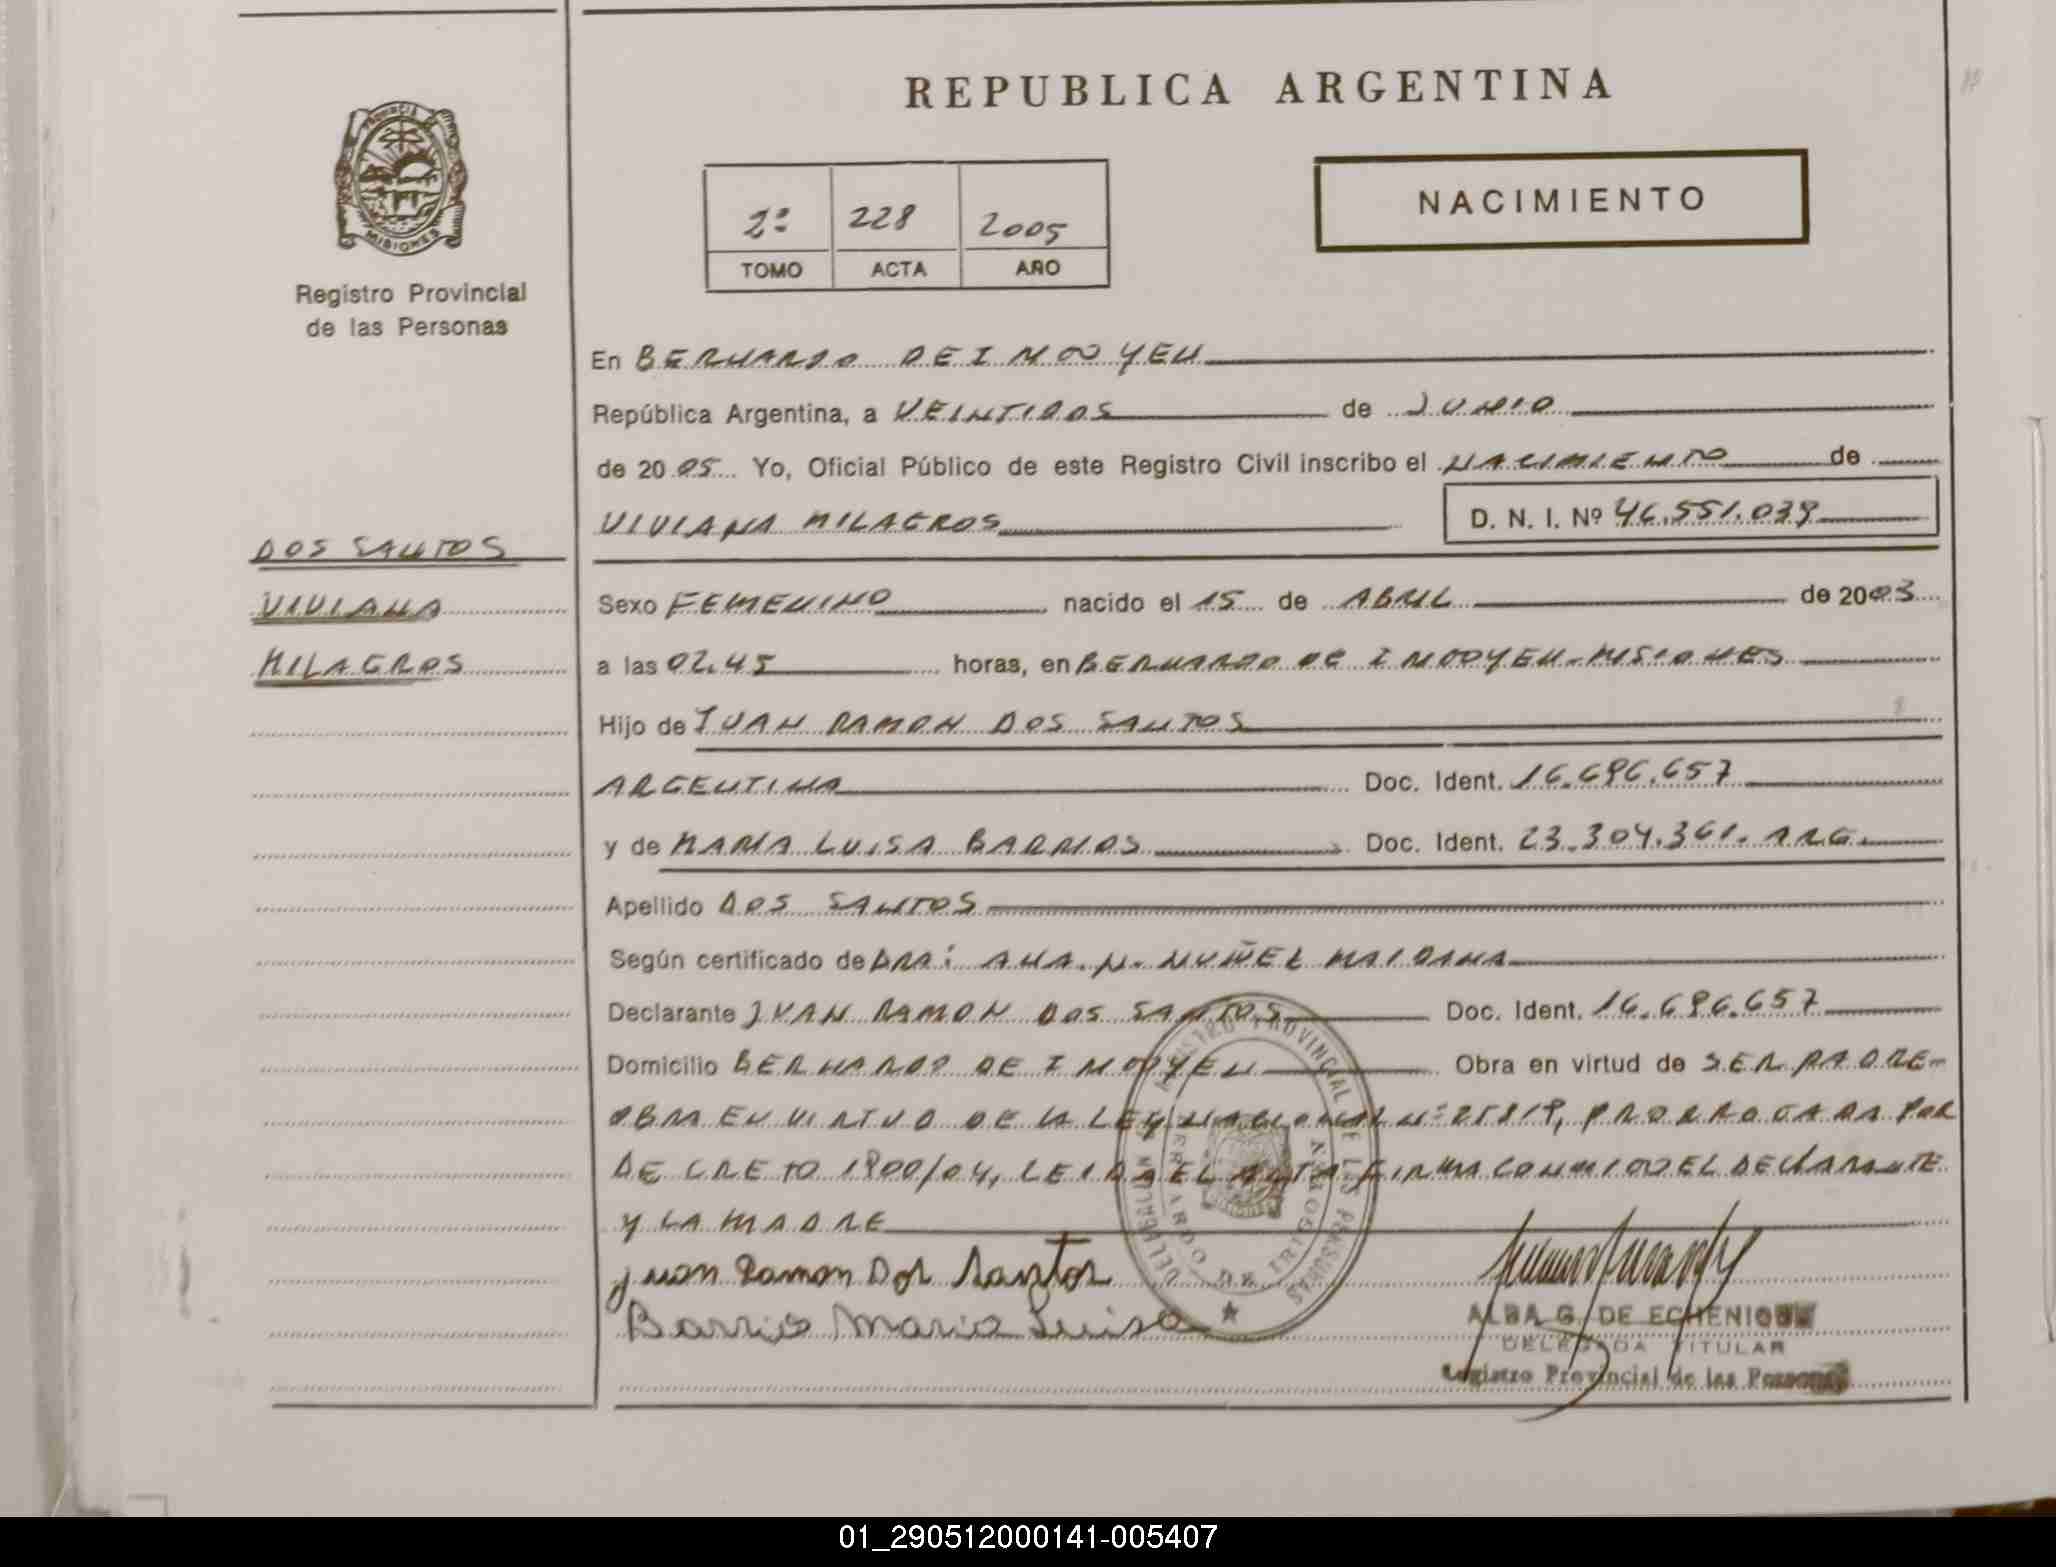 REPUBLICA ARGENTINA
PROVINCIA
MISIONES
Registro Provincial
de las Personas
NACIMIENTO
2º 228 2005
TOMO ACTA AÑO
En BERNARDO DE IRIGOYEN
República Argentina, a VEINTIDOS de JUNIO
de 2005 Yo, Oficial Público de este Registro Civil inscribo el NACIMIENTO de
VIVIANA MILAGROS D. N. I. Nº 46.551.039
DOS SANTOS
VIVIANA
MILAGROS
Sexo FEMENINO nacido el 15 de ABRIL de 2003
a las 02.45 horas, en BERNARDO DE IRIGOYEN-MISIONES
Hijo de JUAN RAMON DOS SANTOS
ARGENTINA Doc. Ident. 16.696.657
y de MARIA LUISA BARRIOS Doc. Ident. 23.304.361. ARG.
Apellido DOS SANTOS
Según certificado de DRA: ANA. N. NUÑEZ MAIDANA
Declarante JUAN RAMON DOS SANTOS Doc. Ident. 16.696.657
Domicilio BERNARDO DE IRIGOYEN Obra en virtud de SER PADRE-
OBRA EN VIRTUD DE LA LEY NACIONAL Nº 25819, PRORROGADA POR
DECRETO 1900/04, LEIDA EL ACTA FIRMA CONMIGO EL DECLARANTE
Y LA MADRE
Juan Ramon Dos Santos
Barrio Maria Luisa
REGISTRO PROVINCIAL DE LAS PERSONAS
BERNARDO DE IRIGOYEN
ALBA G. DE ECHENIQUE
DELEGADA TITULAR
Registro Provincial de las Personas
01_290512000141-005407